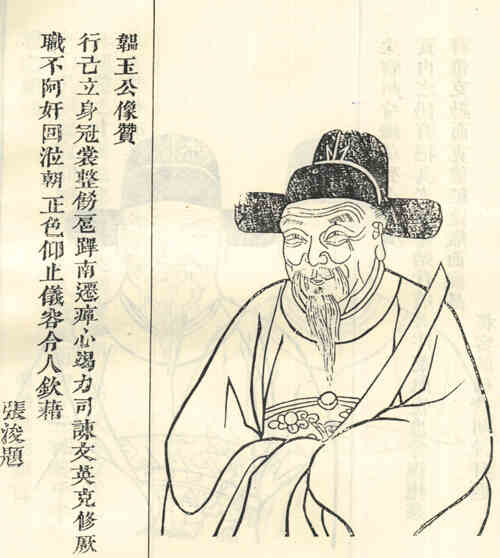 韞玉公像贊
行己立身冠裳整飭扈蹕南遷癉心竭力司諫友英克修厥
職不阿奸回涖朝正色仰止儀容令人欽藉
張浚題